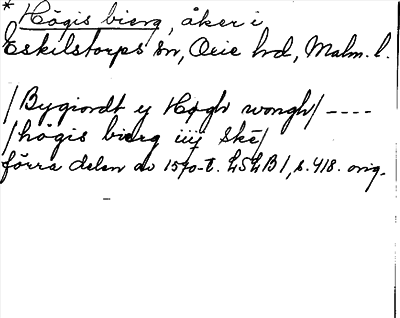 * Högis bierg, åker i
Eskilstorps sn, Oxie hd, Malm. l.
/Bygiordt ij Høgh wongh/ ----
/högis bierg iiij Ske/
förra delen av 1570-t. LSLB1, s. 418. orig.